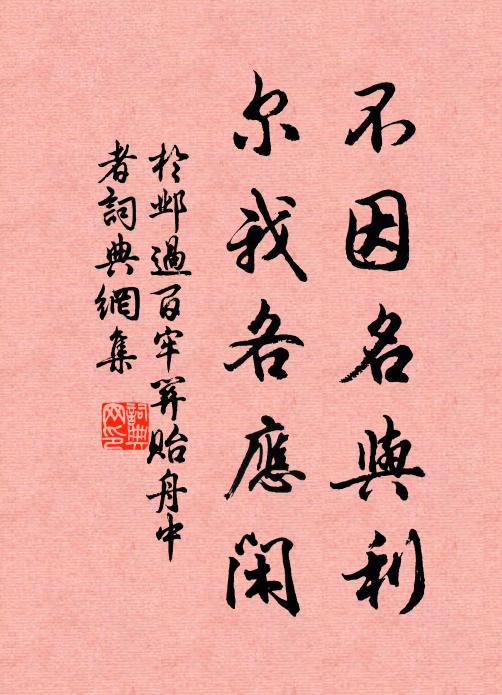 不因名與利
尔我各應閑
於邺過百牢関貽舟中
者詞典網集
詞典
网印